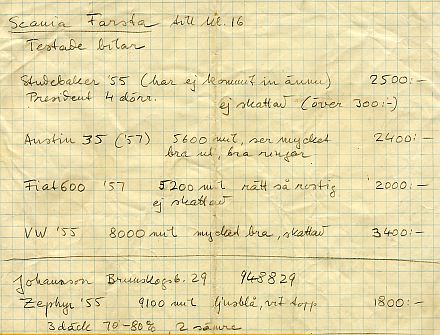 Scania Farsta till kl. 16
Testade bilar
Studebaker '55 (har ej kommit in ännu) 2500:-
President 4 dörr. ej skattad (över 300:-)
Austin 35 ('57) 5600 mil, ser mycket 2400:-
bra ut, bra ringar
Fiat 600 '57 5200 mil rätt så rostig 2000:-
ej skattad
VW '55 8000 mil mycket bra, skattad 3400:-
Johansson Brunskogsb. 29 948829
Zephyr '55 9100 mil ljusblå, vit topp 1800:-
3 däck 70-80%, 2 sämre